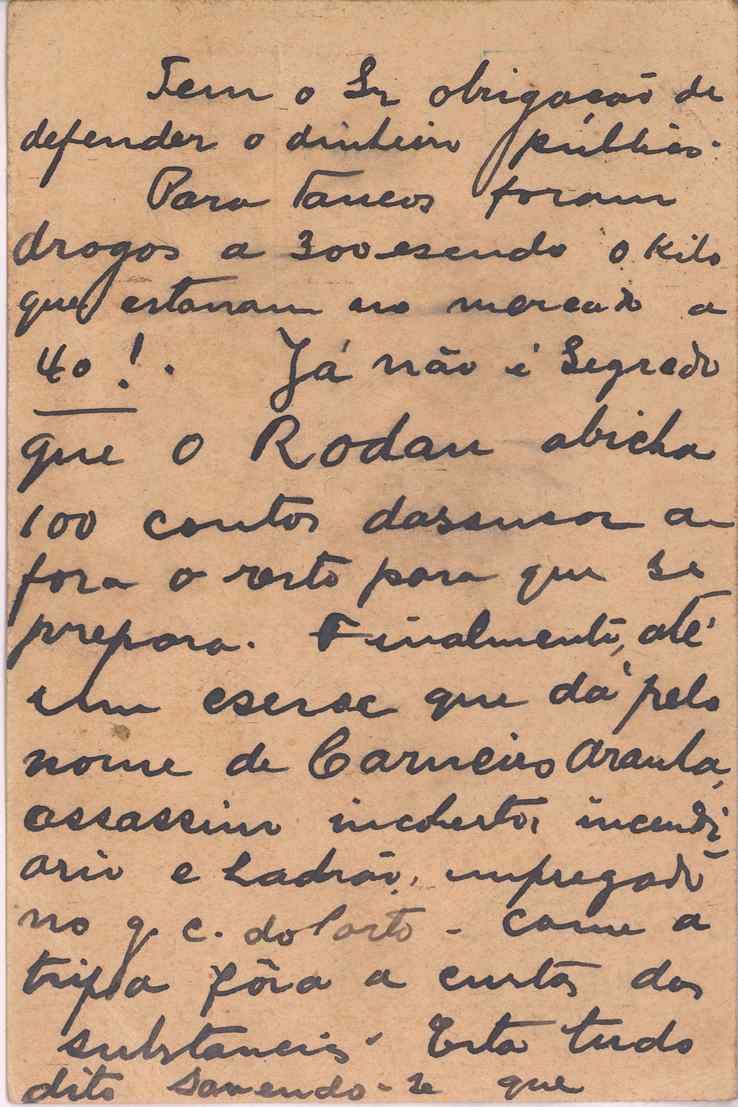 Tem o Sr obrigação de
defender o dinheiro público.
Para Tancos foram
drogas a 300 esendo o Kilo
que estavam no mercado a
40!. Já não é Segredo
que o Rodau abicha
100 contos a
fora o resto para que se
prepara. Finalmente, até
um escroc que dá pelo
nome de Carneiro Aranha,
assassino incoberto, incendi
ario e Ladrão, empregado
no g. c. do Porto - come a
tripa fôra a custa das
substancias. Esta tudo
dito que